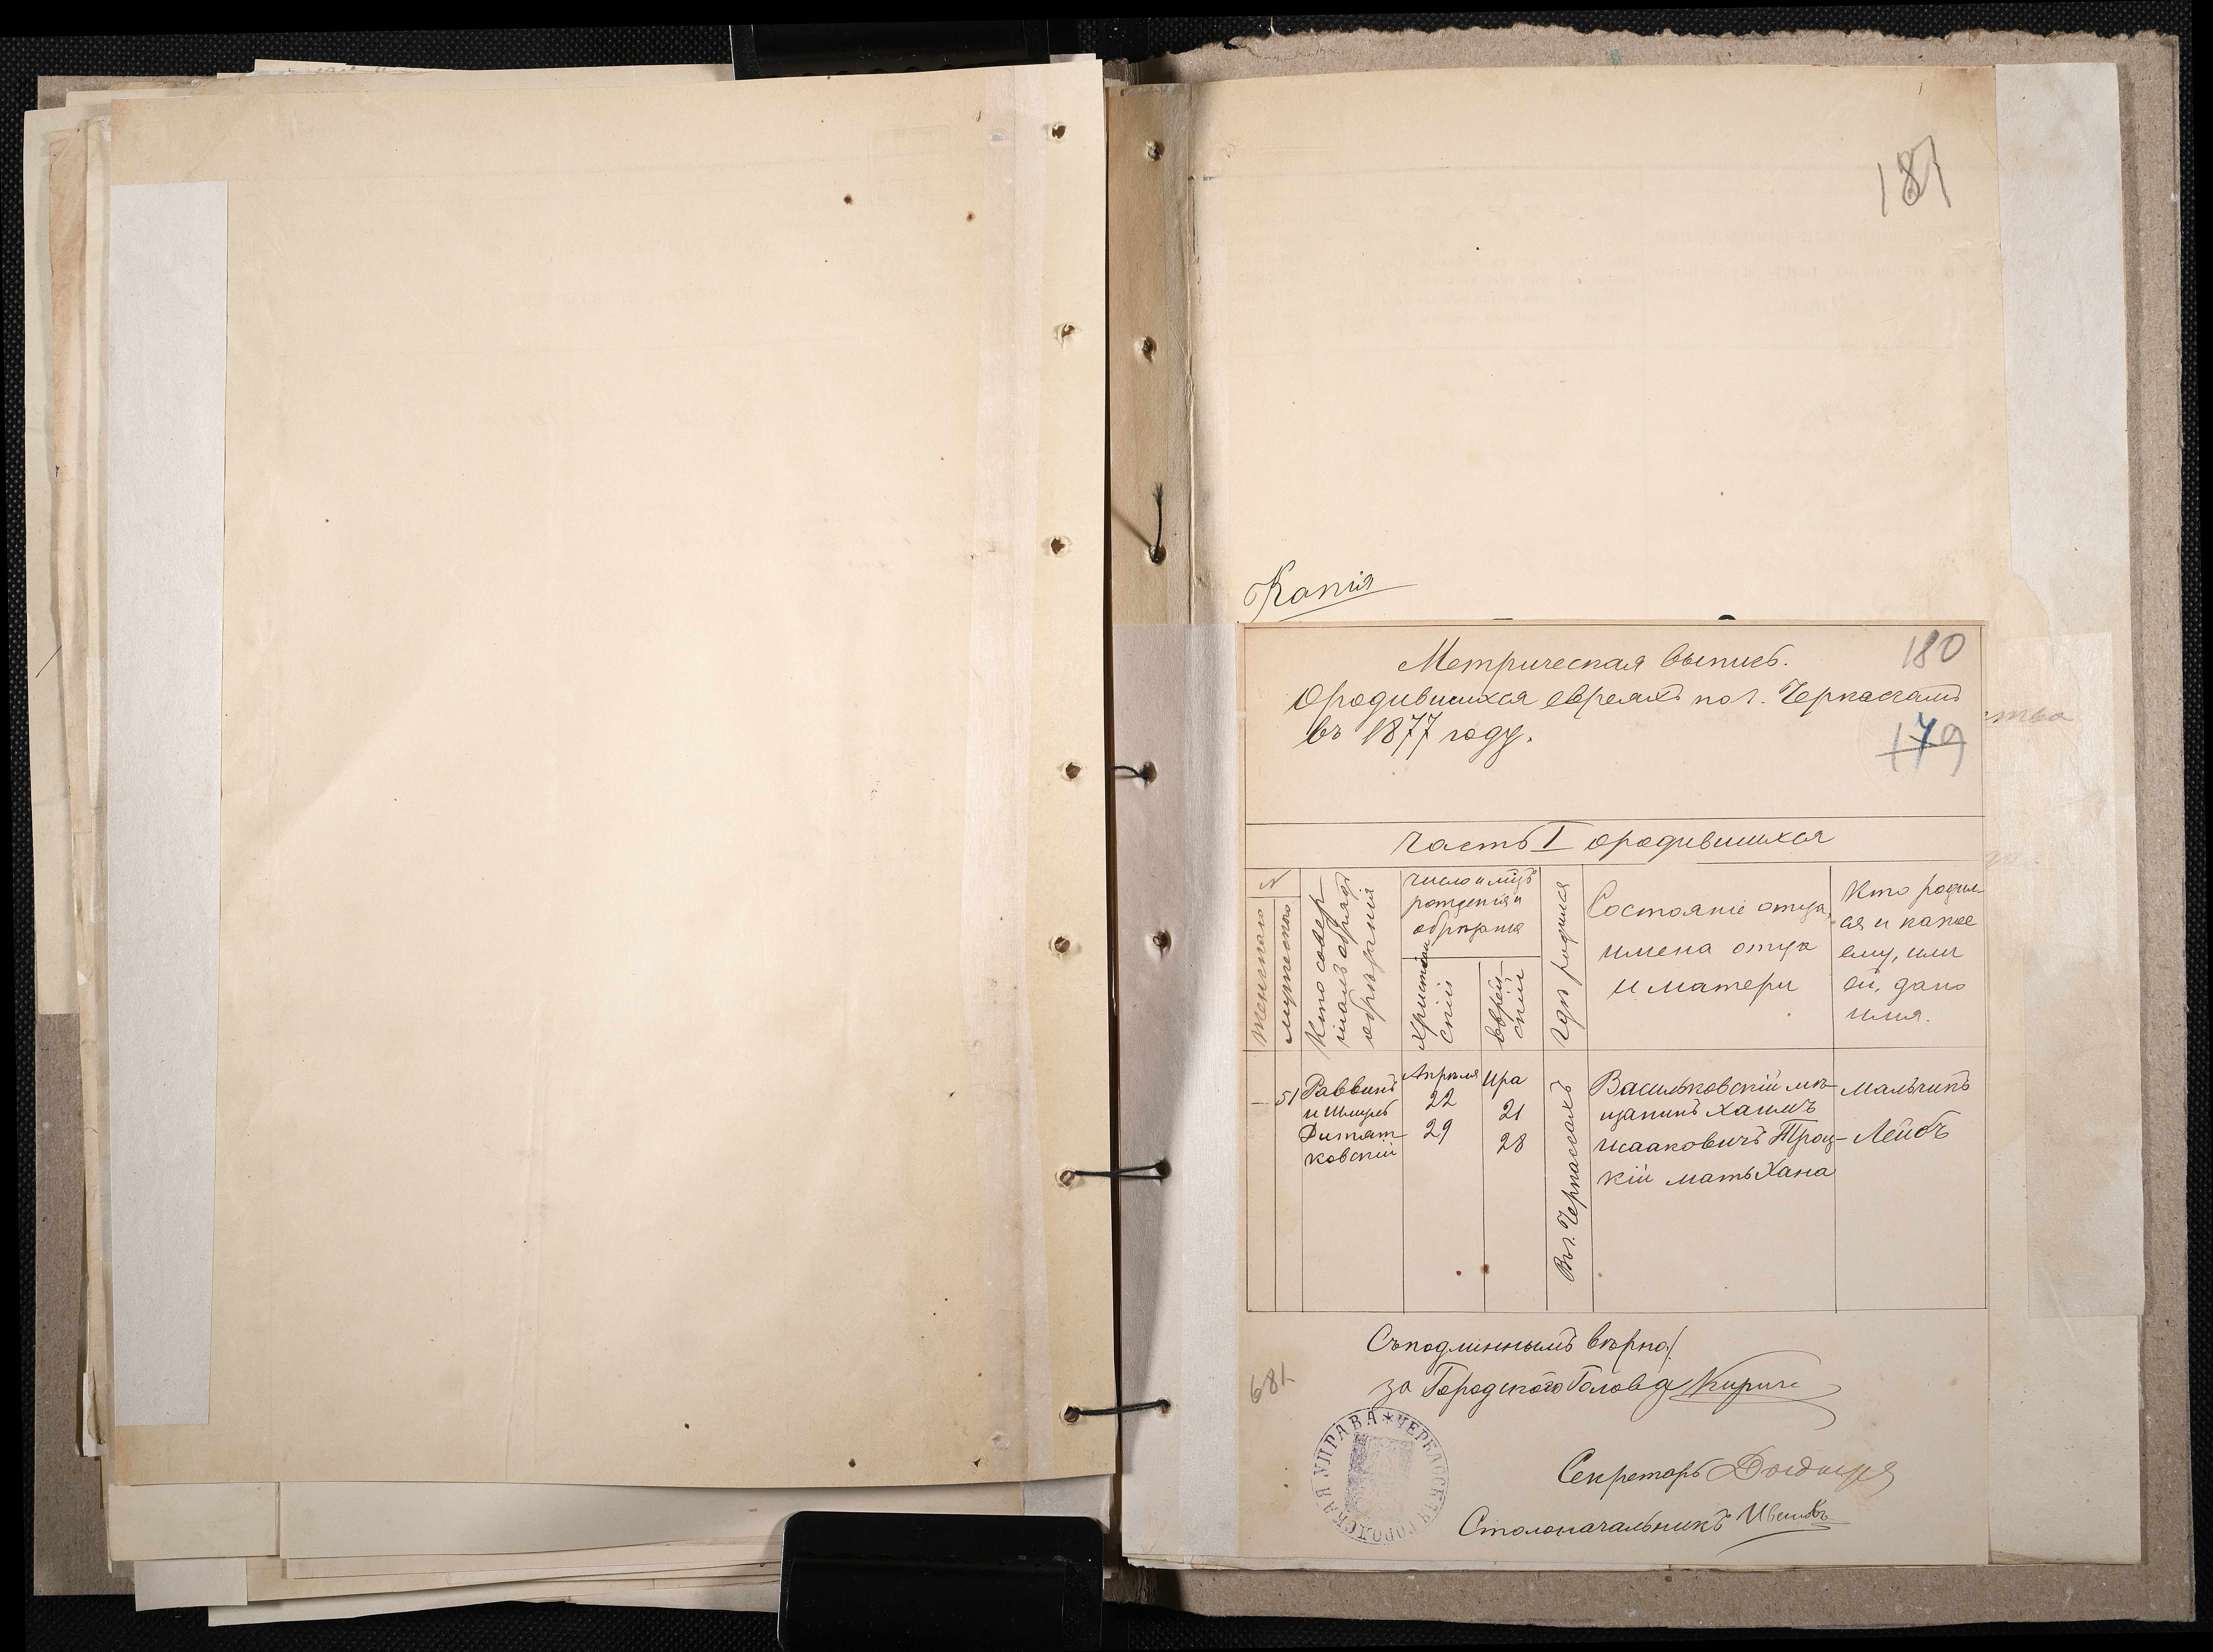 181
Копія
Метрическая выпись.
180
О родившихся евреяхъ по г. Черкассамъ
въ 1877 году.
179
Часть I о родившихся
№
Женскаго
мужескаго
Кто совер-
шалъ обрядъ
обрѣзанія
число и мѣц.
рожденія и
обрѣзанія
Христіан
скій
Еврей-
скій
Гдѣ родился
Состояніе отца,
имена отца
и матери
Кто родил
ся и какое
ему, или
ей, дано
имя.
—
51
Раввинъ
и Шмуль
ковскій
Апрѣля
22
29
Ира
21
28
Въ г. Черкассахъ
Васильковскій мѣ-
щанинъ Хаимъ
Исааковичъ Троц-
кій мать Хана
Мальчикъ
Лейбъ
Съ подлиннымъ вѣрно:
за Городского Голова
681
Секретарь
Столоначальникъ Ивановъ
ЧЕРКАССКАЯ ГОРОДСКАЯ УПРАВА